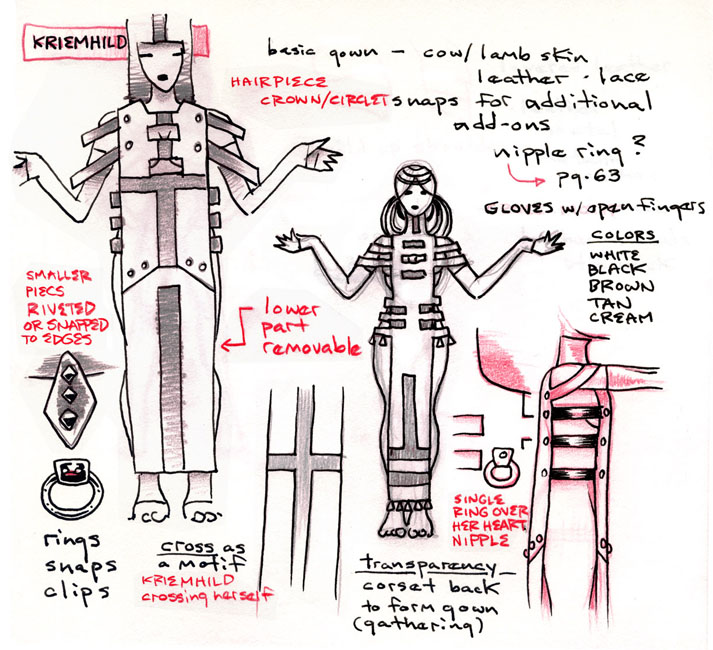 KRIEMHILD
basic gown – cow/lamb skin
leather · lace
snaps for additional
add-ons
HAIRPIECE
CROWN/CIRCLET
nipple ring?
pg. 63
GLOVES w/ open fingers
COLORS
WHITE
BLACK
BROWN
TAN
CREAM
SMALLER
PIECS
RIVETED
OR SNAPPED
TO EDGES
lower
part
removable
rings
snaps
clips
cross as
a motif
KRIEMHILD
crossing herself
SINGLE
RING OVER
HER HEART
NIPPLE
transparency
corset back
to form gown
(gathering)